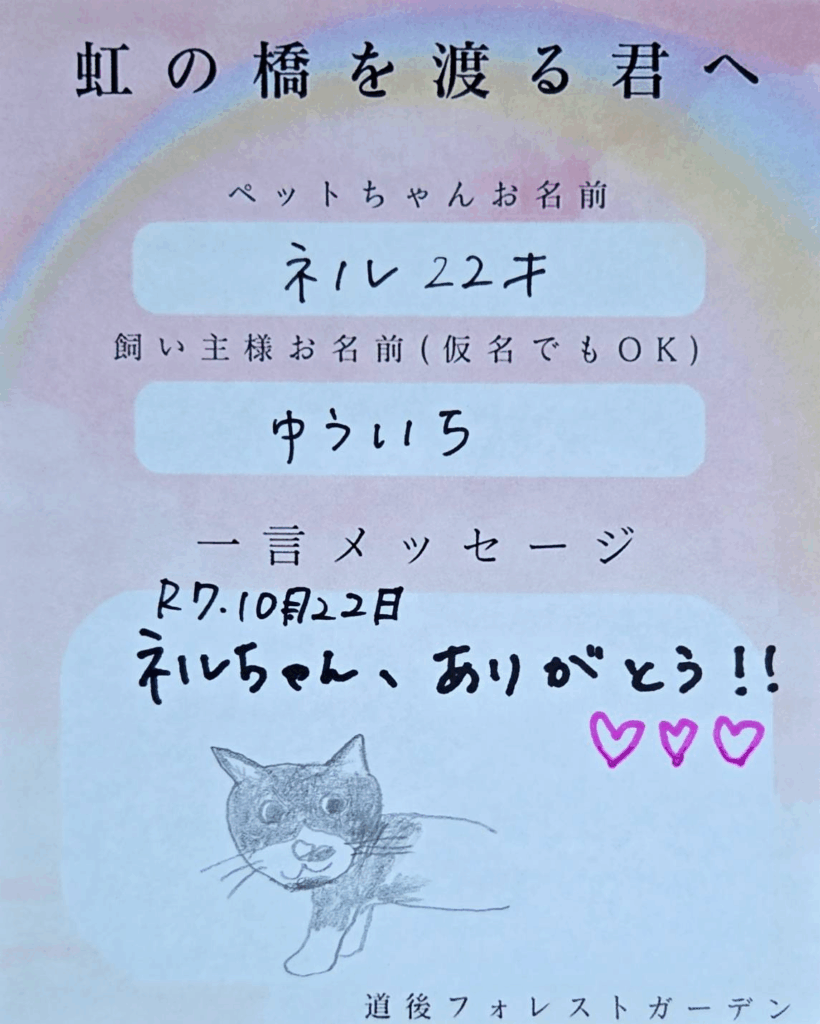 虹の橋を渡る君へ
ペットちゃんお名前
ネル 22才
飼い主様お名前(仮名でもOK)
ゆういち
一言メッセージ
R7.10月22日
ネルちゃん、ありがとう!!
道後フォレストガーデン